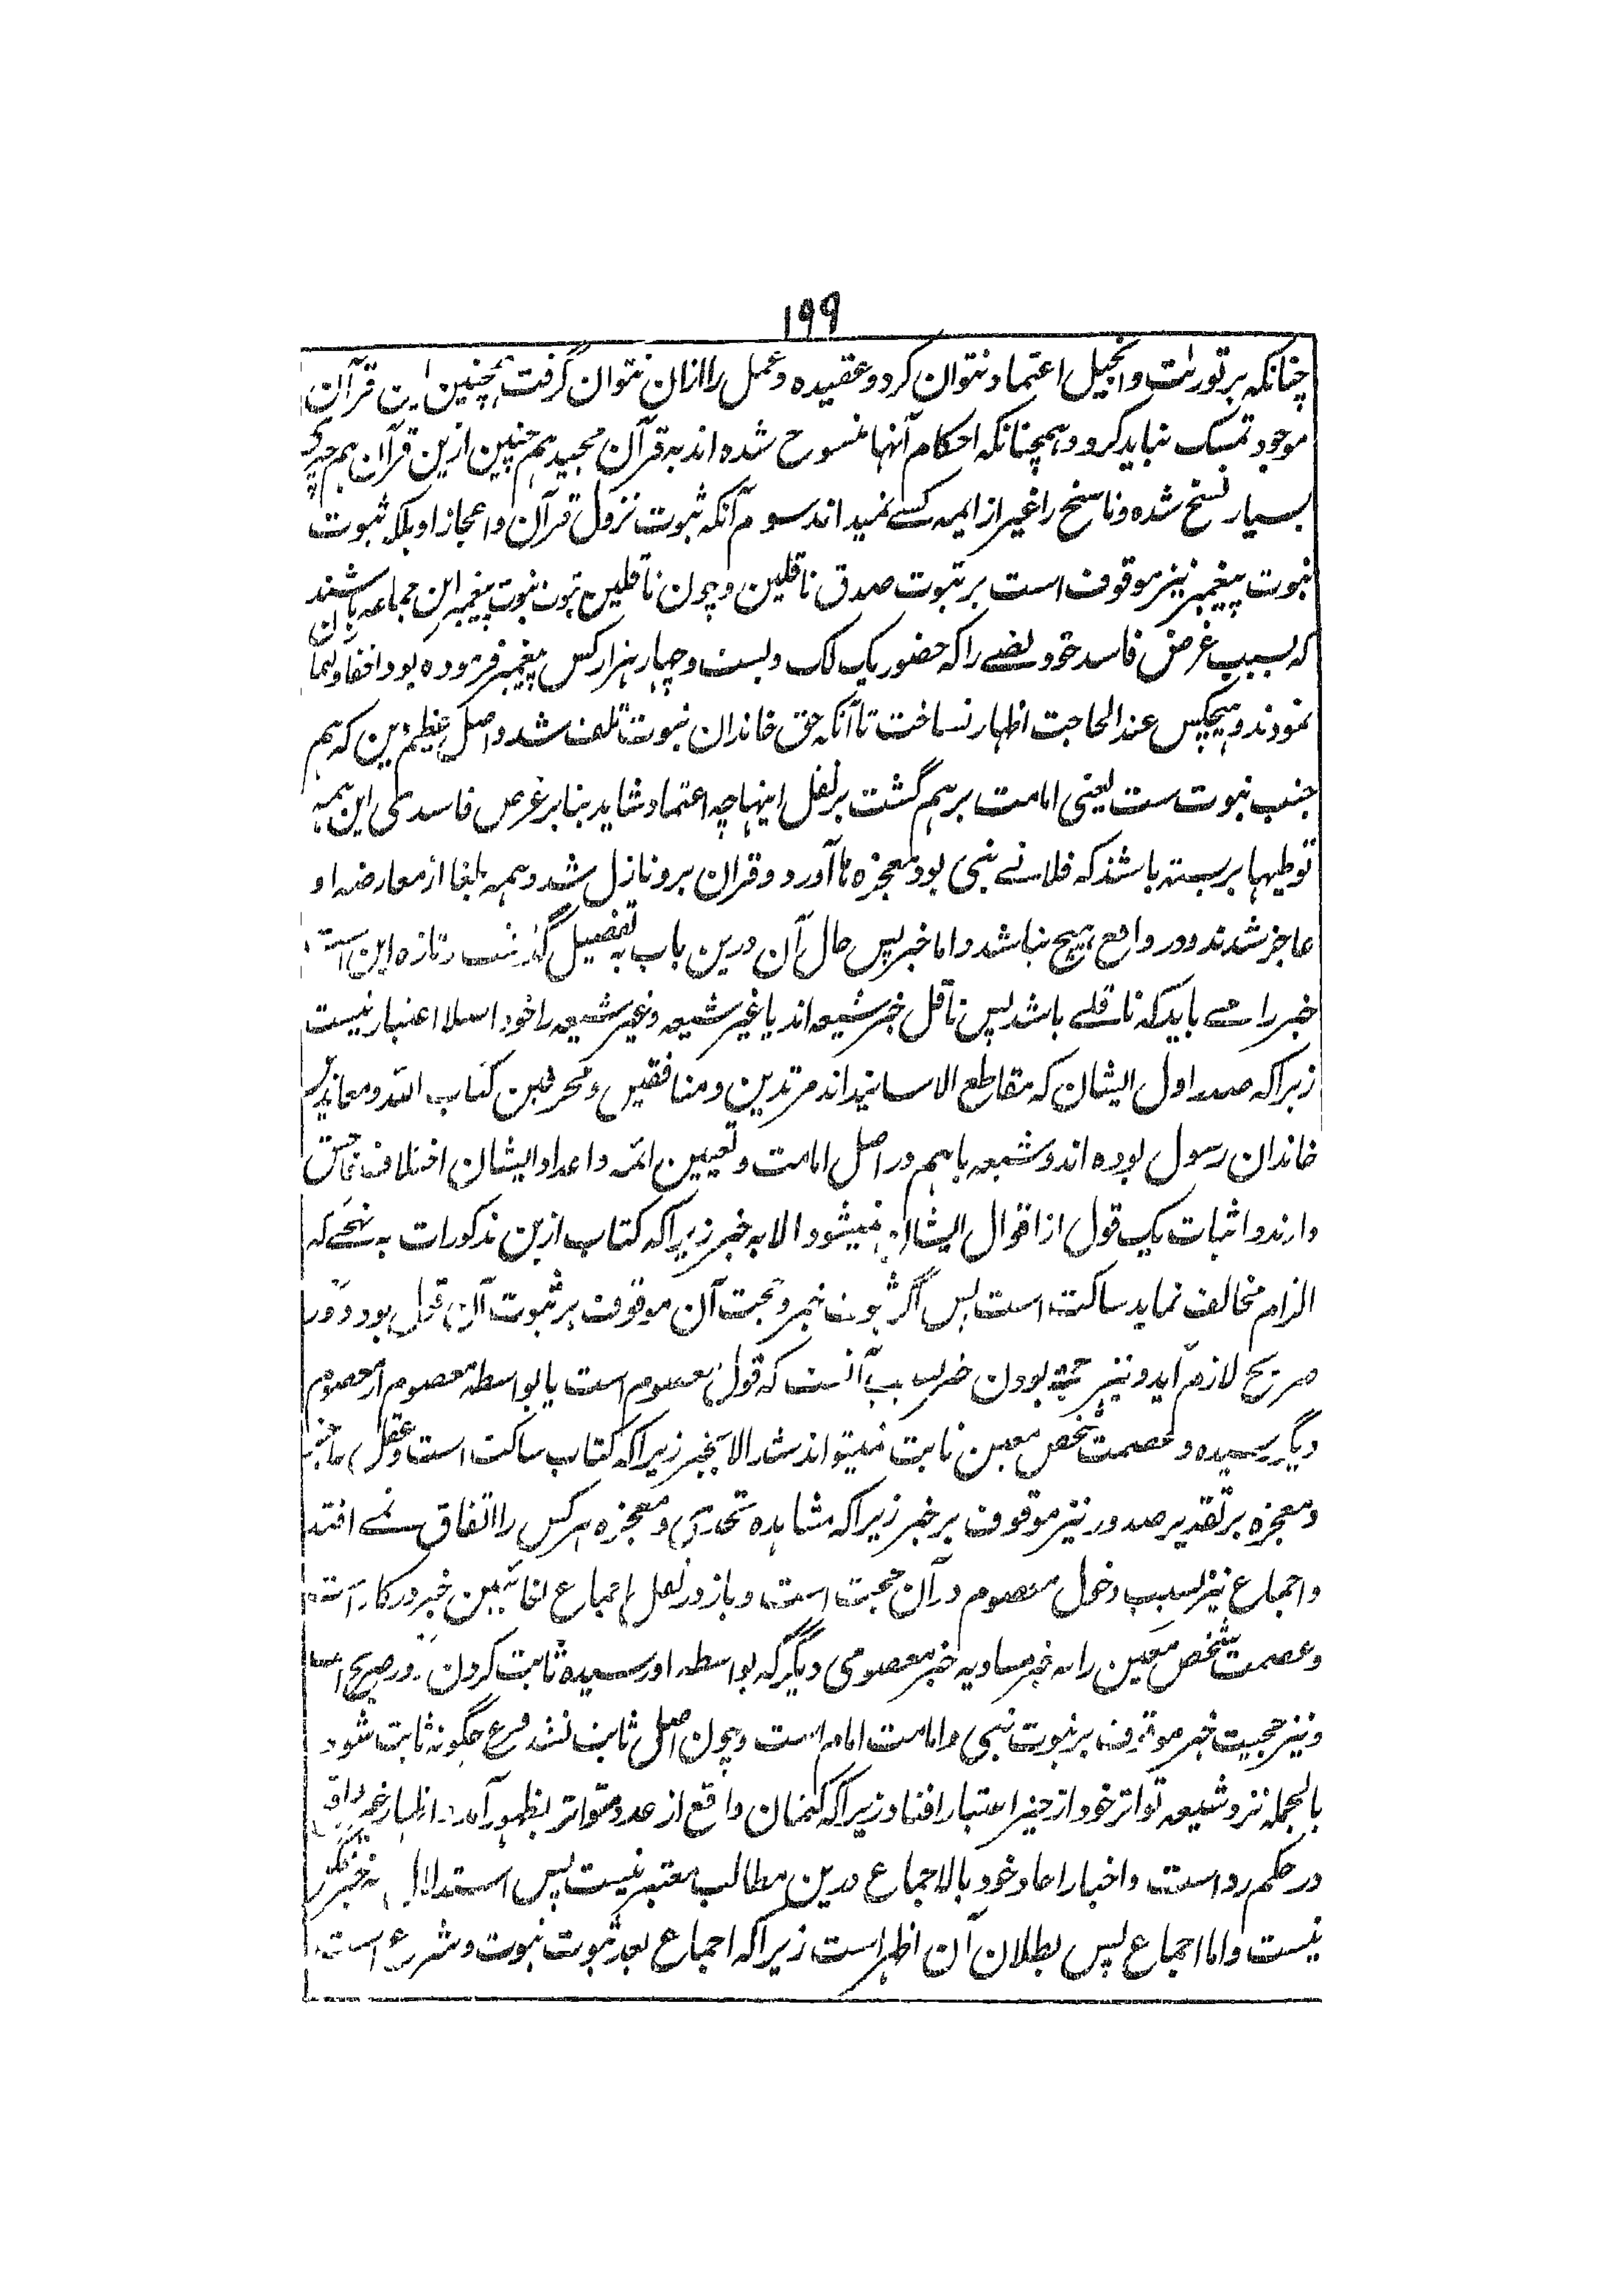 ۱۹۹
چنانکه بر تورات و انجیل اعتماد نتوان کرد و عقیده و عمل را ازان نتوان گرفت همچنین این قرآن
موجود تمسک نباید کرد و همچنانکه احکام آنها منسوخ شده اند به قرآن مجید هم چنین ازین قرآن هم چیزی
بسیار نسخ شده و ناسخ را غیر از ایمه کسے نمیداند سوم آنکه ثبوت نزول قرآن و اعجاز او بلکه ثبوت
نبوت پیغمبر نیز موقوف است بر ثبوت صدق ناقلین و چون ناقلین ثبوت نبوت پیغمبر این جماعه باشند
که بسبب غرض فاسد خود نصے را که حضور یک لک و بست و چهار هزار کس پیغمبر فرموده بود اخفا و کتمان
نمودند و هیچکس عند الحاجت اظهار نساخت تا آنکه حق خاندان نبوت تلف شد و اصل عظیم دین که هم
جنب نبوت ست یعنی امامت برهم گشت بر نقل اینها چه اعتماد شاید بنا بر غرض فاسدی این همه
توطیها بربسته باشند که فلانے نبی بود و معجزه ها آورد و قران برو نازل شد و همه بلغا از معارضه او
عاجز شدند و در واقع هیچ نباشد و اما خبر پس حال آن درین باب به تفصیل گذشت و تازه این است
خبر را مے باید که ناقلے باشد پس ناقل خبر شیعه اند یا غیر شیعه و غیر شیعه را خود اصلا اعتبار نیست
زیرا که صدر اول ایشان که مقاطع الاسانید اند مرتدین و منافقین و محرفین کتاب الله و معاندین
خاندان رسول بوده اند و شیعه باهم در اصل امامت و تعیین ائمه و اعداد ایشان اختلاف فاحش
دارند و اثبات یک قول از اقوال ایشان نمیشود الا به خبر زیرا که کتاب ازین مذکورات به نہجے که
الزام مخالف نماید ساکت است پس اگر ثبوت خبر و حجت آن موقوف بر ثبوت آن قول بود دور
صریح لازم آید و نیز حجة بودن خبر بسبب آنست که قول معصوم است یا بواسطه معصوم از معصوم
دیگر رسیده و عصمت شخص معین ثابت نمیتواند شد الا بخبر زیرا که کتاب ساکت است و عقل عاجز
و معجزه بر تقدیر صدور نیز موقوف بر خبر زیرا که مشاهده تحدی و معجزه هر کس را اتفاق نمے افتد
و اجماع نیز بسبب دخول معصوم در آن حجت است و باز در نقل اجماع لغائبین خبر در کار است
و عصمت شخص معین را به خبر معصومی دیگر که بواسطه او رسیده ثابت کردن دور صریح است
و نیز حجیت خبر موقوف بر نبوت نبی و امامت امام است و چون اصل ثابت نشد فرع چگونه ثابت شود
بالجمله نزد شیعه تواتر خود از حیز اعتبار افتاد زیرا که کتمان واقع از عدد متواتر بظهور آمد اظهار غیر واقع
در حکم رد است و اخبار احاد خود بالاجماع درین مطالب معتبر نیست پس استدلال به خبر ممکن
نیست و اما اجماع پس بطلان آن اظهر است زیرا که اجماع بعد ثبوت نبوت و شرع است